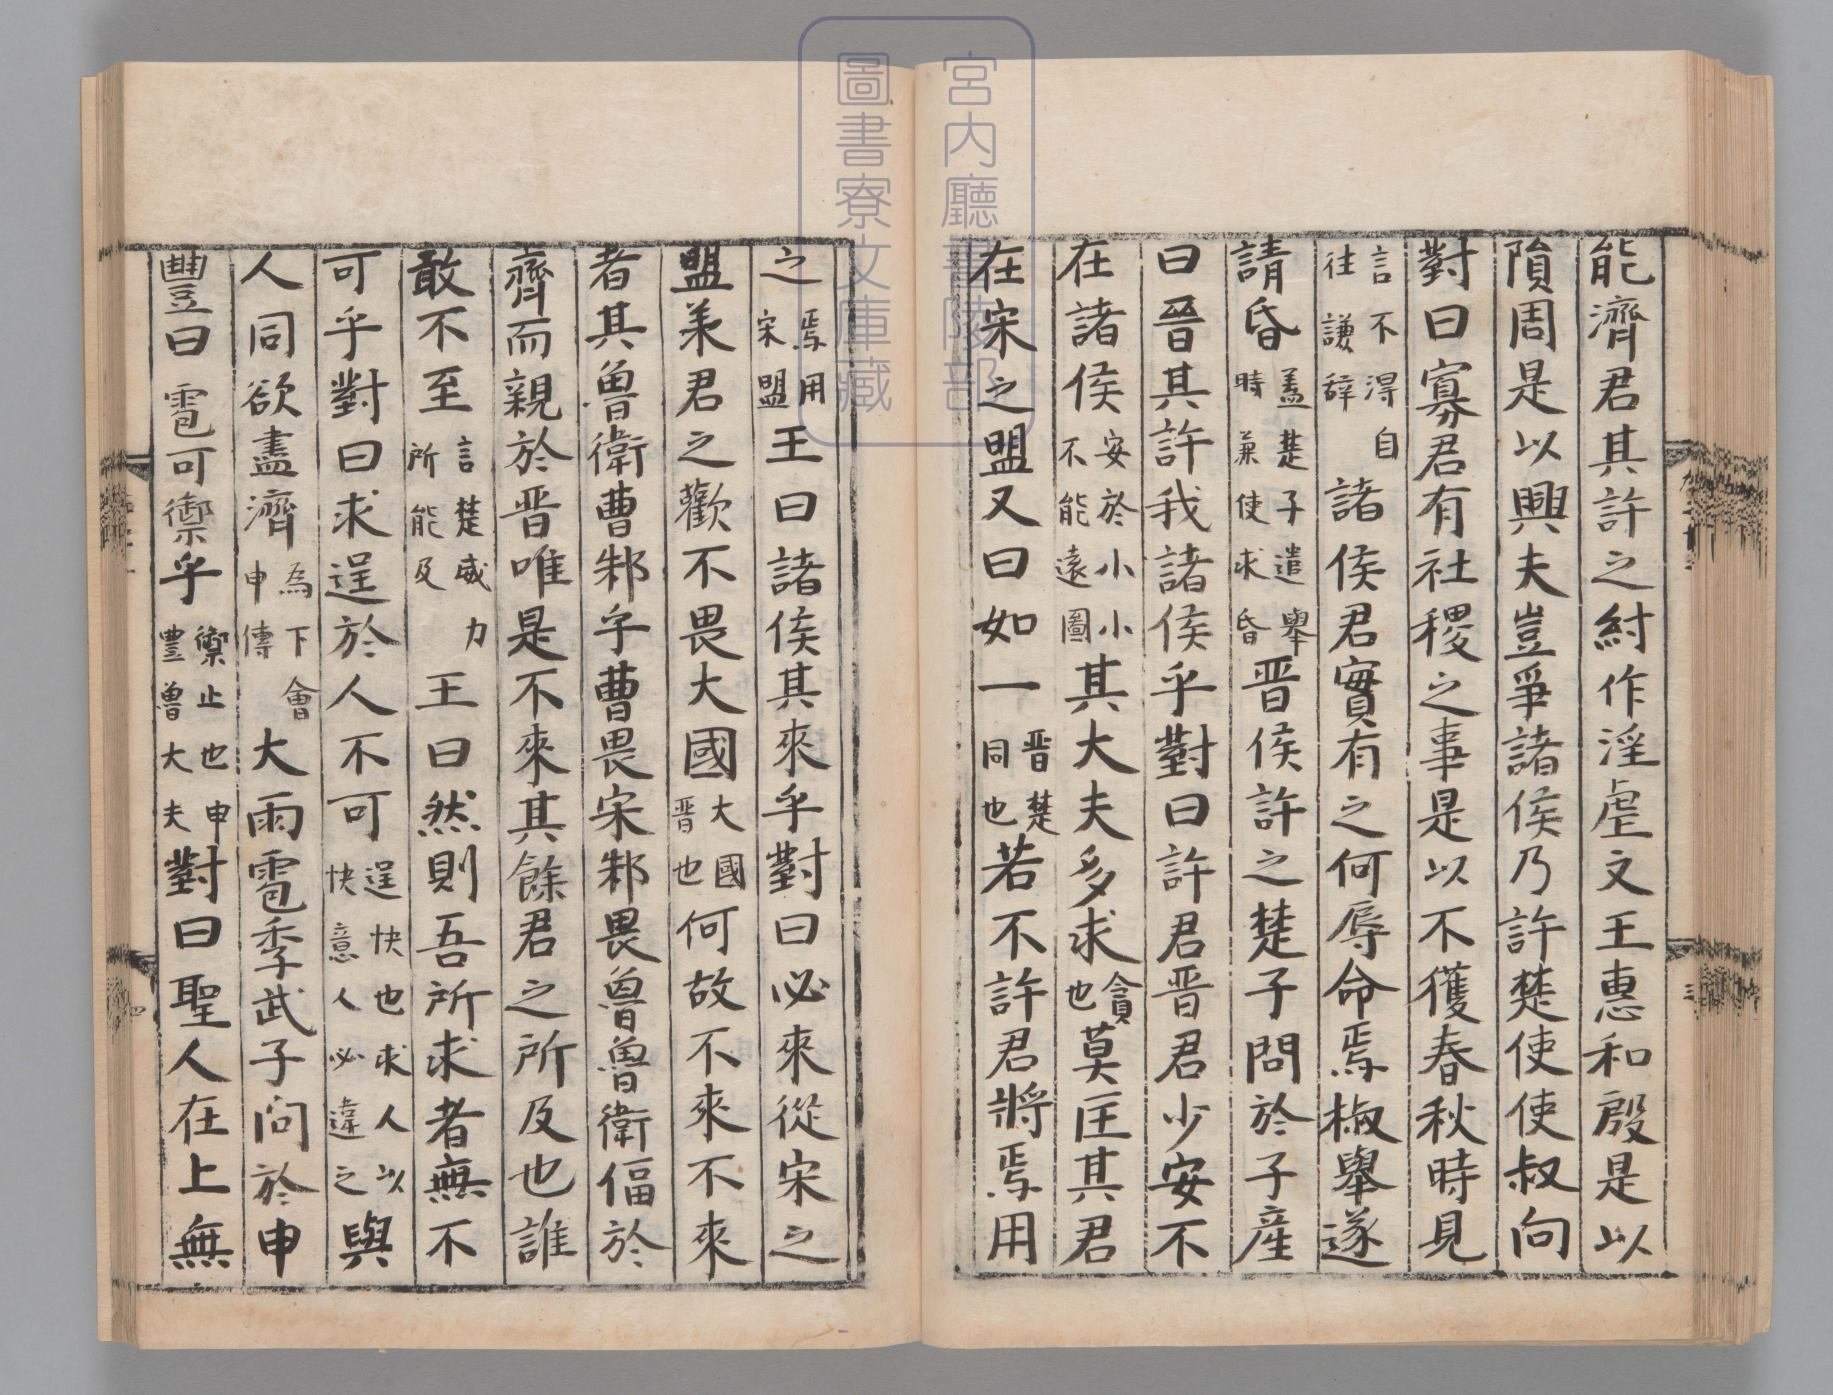 能濟君其許之紂作淫虐文王惠和殷是以
隕周是以興夫豈爭諸侯乃許楚使使叔向
對曰寡君有社稷之事是以不獲春秋時見
言不得自往謙辞諸侯君實有之何辱命焉椒舉遂
請昏盖楚子遣舉時兼使求昏晋侯許之楚子問於子産
曰晉其許我諸侯乎對曰許君晋君少安不
在諸侯安於小小不能遠圖其大夫多求貪也莫匡其君
在宋之盟又曰如一晋楚同也若不許君將焉用
之焉用宋盟王曰諸侯其來乎對曰必來從宋之
盟羕君之歡不畏大國大國晋也何故不來不來
者其魯衛曹邾乎曹畏宋邾畏魯魯衛偪於
齊而親於晋唯是不來其餘君之所及也誰
敢不至言楚威力所能及王曰然則吾所求者無不
可乎對曰求逞於人不可逞快也求人以快意人必違之與
人同欲盡濟為下會申傳大雨雹季武子问於申
豐曰雹可禦乎禦止也申豊魯大夫對曰聖人在上無
宮内廳書陵部
圖書寮文庫藏